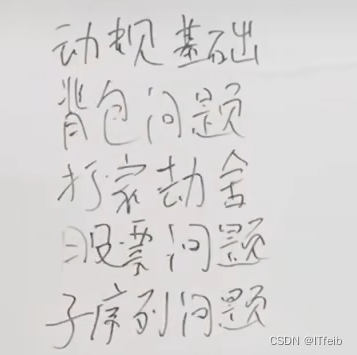 动规基础
背包问题
打家劫舍
股票问题
子序列问题
CSDN @ITfeib